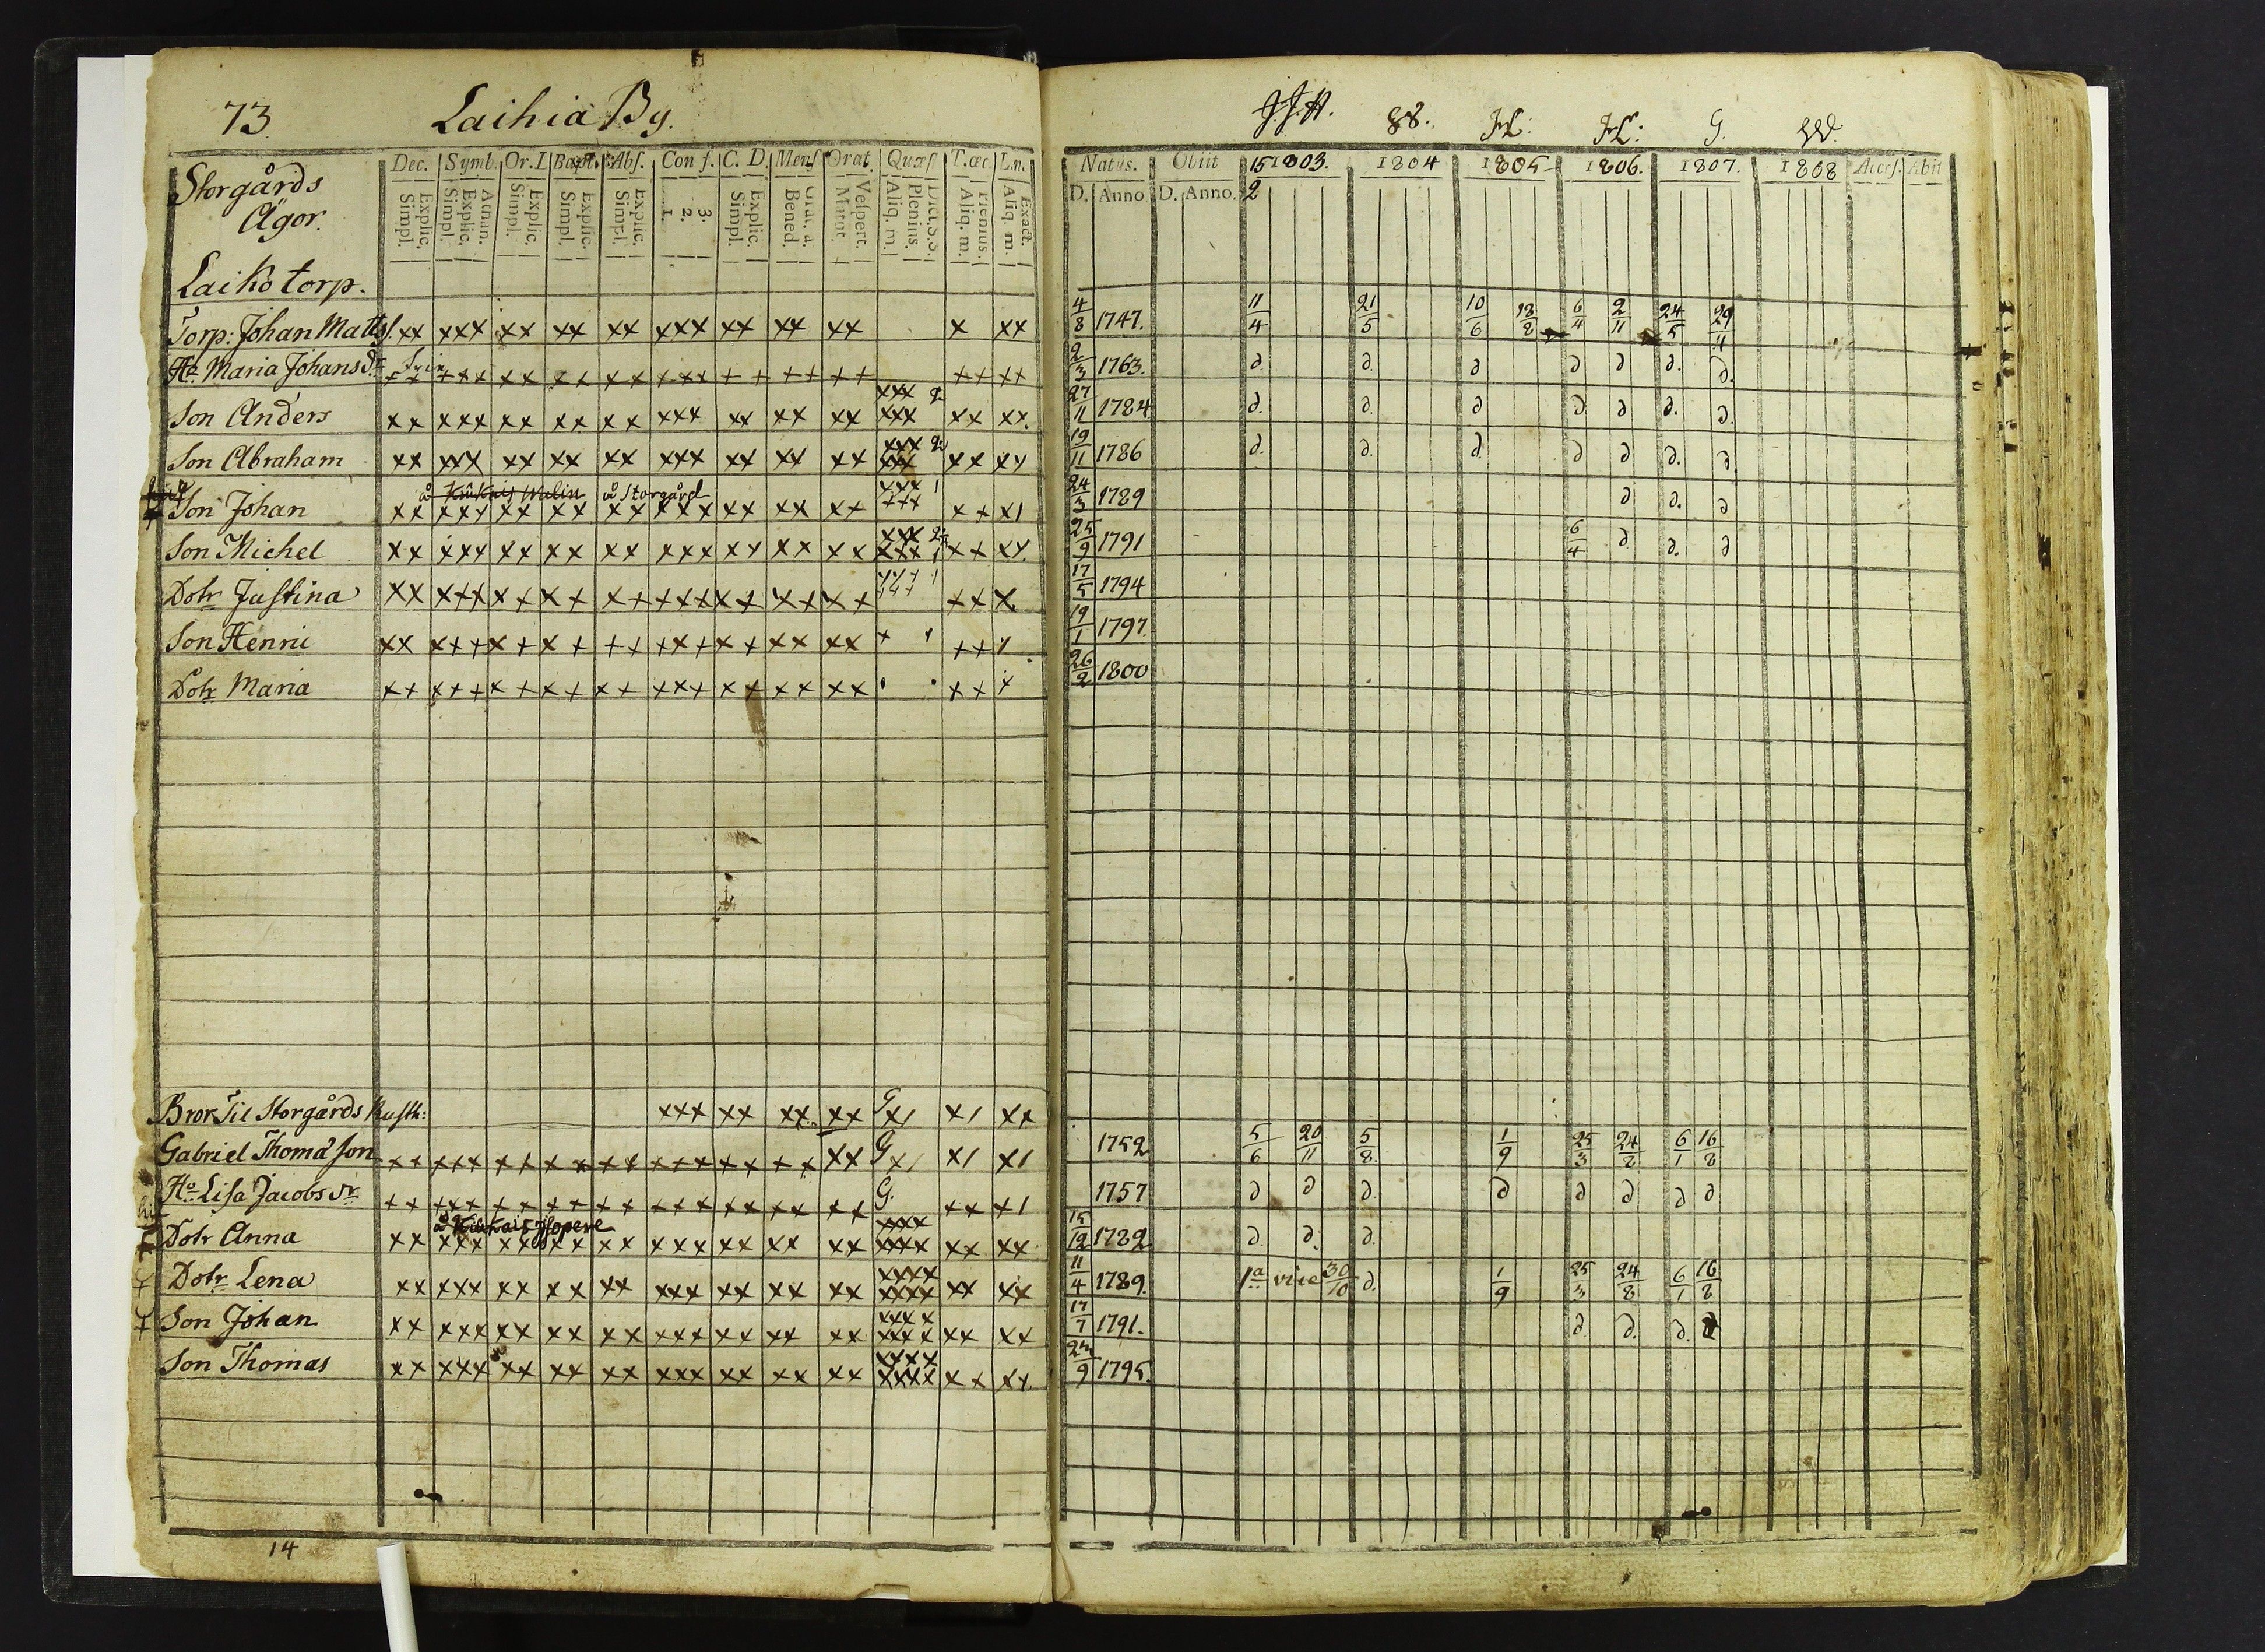 73. Laihia By.
Storgårds
Ägor.
Dec. Symb. Or.D Bapt. Abs. Conf. C. D. Mens Orat. Quæst T.œc. L.n.
Explic. Simpl. Athan. Explic. Simpl. Explic. Simpl. Explic. Simpl. Explic. Simpl. 3. 2. 1. Explic. Simpl. Grat. a. Bened. Vespert. Matut. Dict.S.S. Plenius. Aliq. m. Plenius. Aliq. m. Exact. Aliq. m.
Laiko torp.
Torp: Johan Matts. xx xxx xx xx xx xxx xx xx xx x xx
Ho. Maria Johansdr ++ +++ xx xx ++ +xx ++ ++ ++ ++ ++
Son Anders xx xxx xx xx xx xxx xx xx xx xxx 2 xxx xx xx.
Son Abraham xx xxx xx xx xx xxx xx xx xx xxx 2 xxx xx xx
å Storgård
Son Johan xx xxx xx xx xx xxx xx xx x+ xxx 1 +++ x+ x1
Son Michel xx xxx xx xx xx xxx xx xx xx xxx 2 xxx 1 x+ xx.
Dotr Justina xx x++ x+ x+ x+ +++ x+ x+ x+ 1 ++ x
Son Henric xx x++ x+ x+ ++ +x+ x+ xx xx + ++
Dotr Maria x+ x++ x+ x+ x+ +x+ x+ xx xx . . ++ x
Bror Til Storgårds Rusth: xxx xx xx xx G x1 x1 xx
Gabriel Thomä Son ++ +++ ++ ++ ++ +++ ++ ++ xx G x1 x1 x1
Ho Lisa Jacobs dr ++ +++ ++ ++ ++ +++ ++ ++ ++ G. ++ +1
Dotr Anna xx xxx xx xx xx xxx xx xx xx xxxx xxxx xx xx
Dotr Lena xx xxx xx xx xx xxx xx xx xx xxxx xxxx xx xx
Son Johan xx xxx xx xx xx xxx xx xx xx xxxx xxxx xx xx
Son Thomas xx xxx xx xx xx xxx xx xx xx xxxx xxxx xx xx.
14
J.J.H. G.
Natus. Obiit 15/2 1803. 1804 1805 1806. 1807. 1808 Access. Abit
D. Anno D. Anno.
4/8 1747. 11/4 21/5 10/6 18/8 6/4 2/11 24/5 29/11
2/3 1763. d. d. d d d d. d.
27/11 1784 d. d. d d d d. d.
19/11 1786 d. d. d. d d d. d
24/3 1789 d d. d
25/9 1791 6/4 d d. d
17/5 1794
19/1 1797.
26/2 1800
1752 5/6 20/11 5/8. 1/9 25/3 24/8 6/1 16/8
1757 d d d. d d d d d
15/12 1782 d. d. d.
11/4 1789. 1a vice 30/10 d. 1/9 25/3 24/8 6/1 16/8
17/7 1791. d. d. d. d
1795.